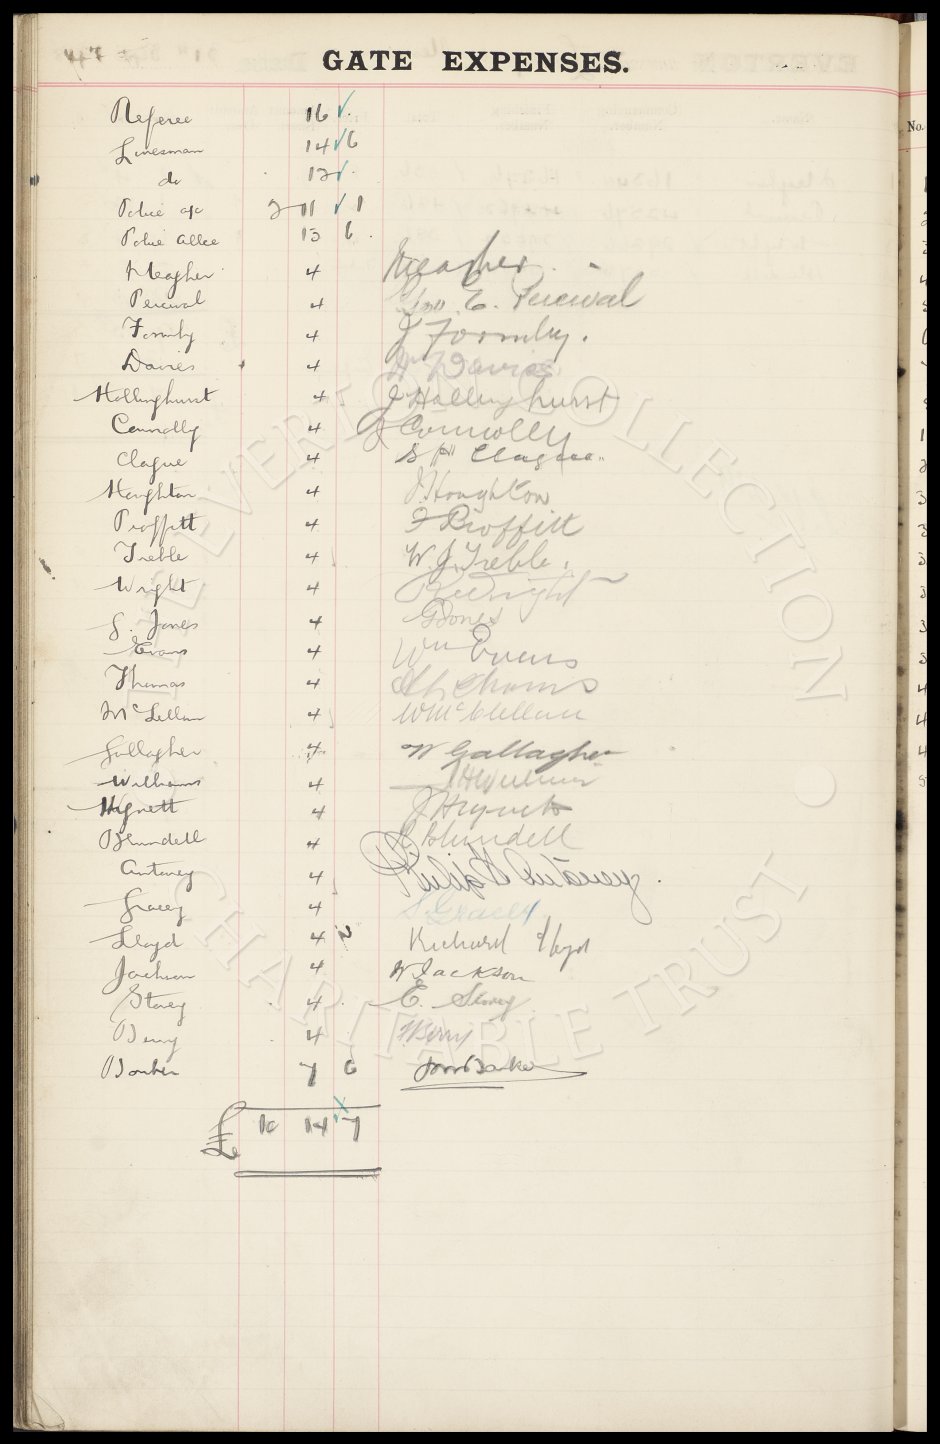 GATE EXPENSES.
Referee 16
Linesman 14 6
do 12
Police a/c 2 11 1
Police Allee 15 6
Meagher 4 Meagher
Percival 4 Geo. E. Percival
Formby 4 J Formby.
Davies 4 Davies
Hollinghurst 4 J Hollinghurst
Connolly 4 J Connolly
Clague 4 S H Clague
Houghton 4 J. Houghton
Proffitt 4 J Proffitt
Treble 4 W. J. Treble.
Wright 4 R Wright
G. Jones 4 G Jones
Evans 4 Wm Evens
Thomas 4
McLellan 4 W McClellan
Gallagher 4 W Gallagher
Williams 4
Hignett 4 J Hignett
Blundell 4 Blundell
Antoney 4 Philip Antoney.
Gracey 4 S. Gracey
Lloyd 4 2 Richard Lloyd
Jackson 4 W Jackson
Storey 4 E. Storey
Berry 4 Berry
Barker 7 6 Barker
£ 10 14 7
No.
THE EVERTON COLLECTION CHARITABLE TRUST